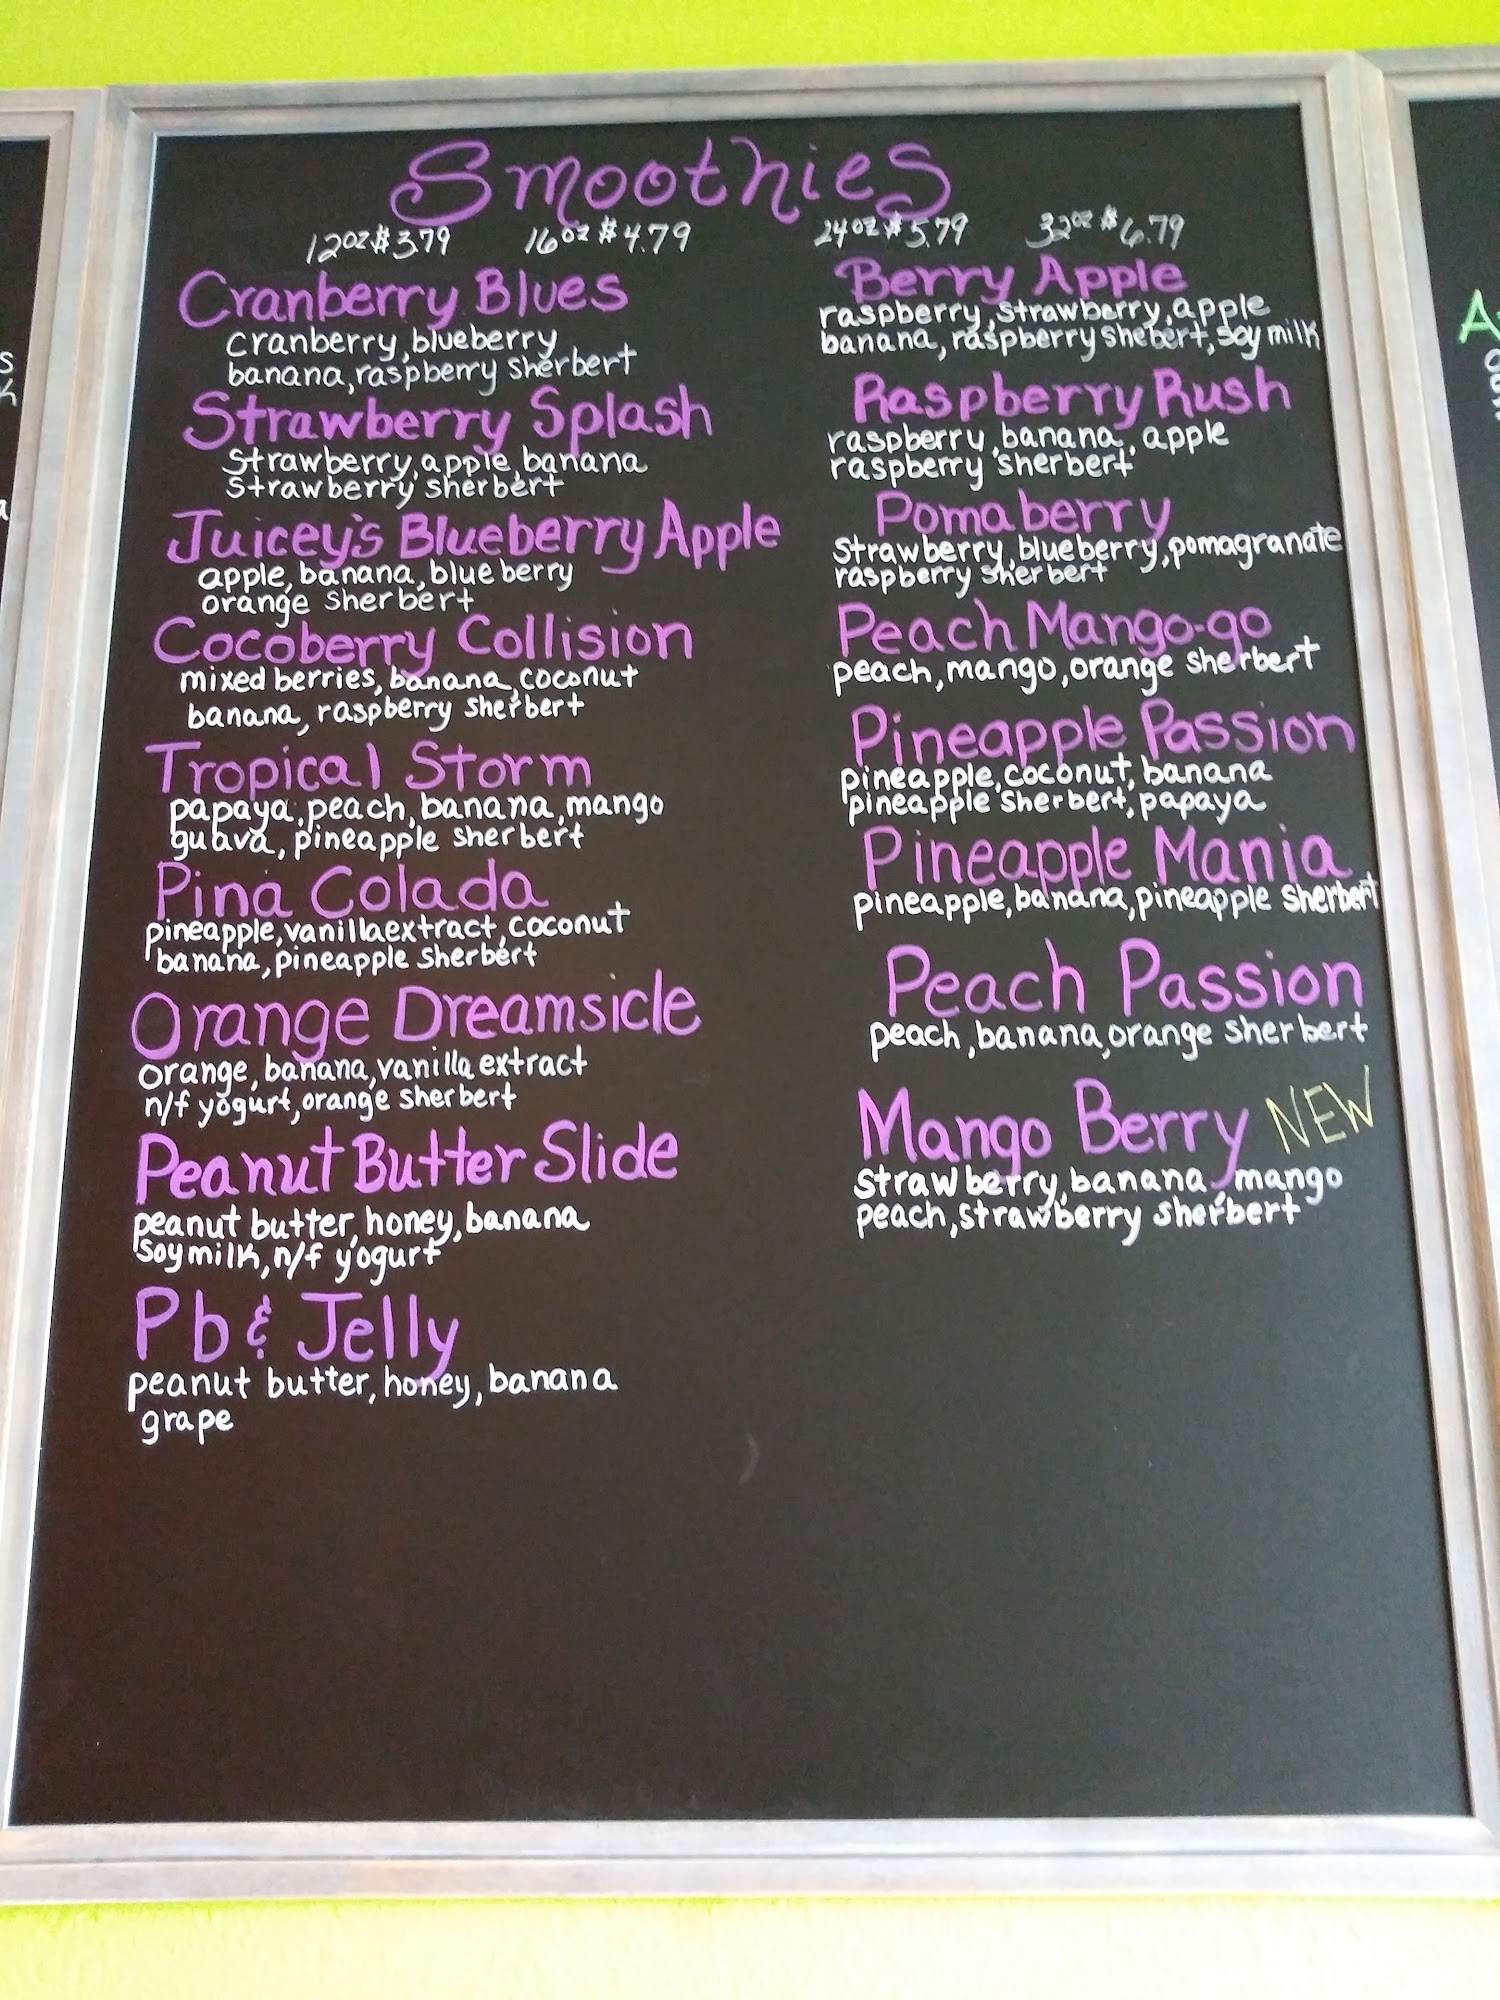 Smoothies
12oz $3.79 16oz $4.79 24oz $5.79 32oz $6.79
Cranberry Blues
cranberry, blueberry
banana, raspberry sherbert
Strawberry Splash
strawberry, apple, banana
strawberry sherbert
Juicey's Blueberry Apple
apple, banana, blueberry
orange sherbert
Cocoberry Collision
mixed berries, banana, coconut
banana, raspberry sherbert
Tropical Storm
papaya, peach, banana, mango
guava, pineapple sherbert
Pina Colada
pineapple, vanilla extract, coconut
banana, pineapple sherbert
Orange Dreamsicle
orange, banana, vanilla extract
n/f yogurt, orange sherbert
Peanut Butter Slide
peanut butter, honey, banana
soy milk, n/f yogurt
Pb & Jelly
peanut butter, honey, banana
grape
Berry Apple
raspberry, strawberry, apple
banana, raspberry shebert, soy milk
Raspberry Rush
raspberry, banana, apple
raspberry sherbert
Pomaberry
strawberry, blueberry, pomagranate
raspberry sherbert
Peach Mango-go
peach, mango, orange sherbert
Pineapple Passion
pineapple, coconut, banana
pineapple sherbert, papaya
Pineapple Mania
pineapple, banana, pineapple sherbert
Peach Passion
peach, banana, orange sherbert
Mango Berry NEW
strawberry, banana, mango
peach, strawberry sherbert